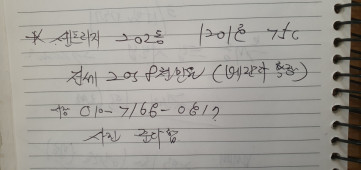 * 센트리지 202동 1201호 75C
전세 2억 8천만원 (베란다 확장)
솟 010-7166-0812
사진 준다함